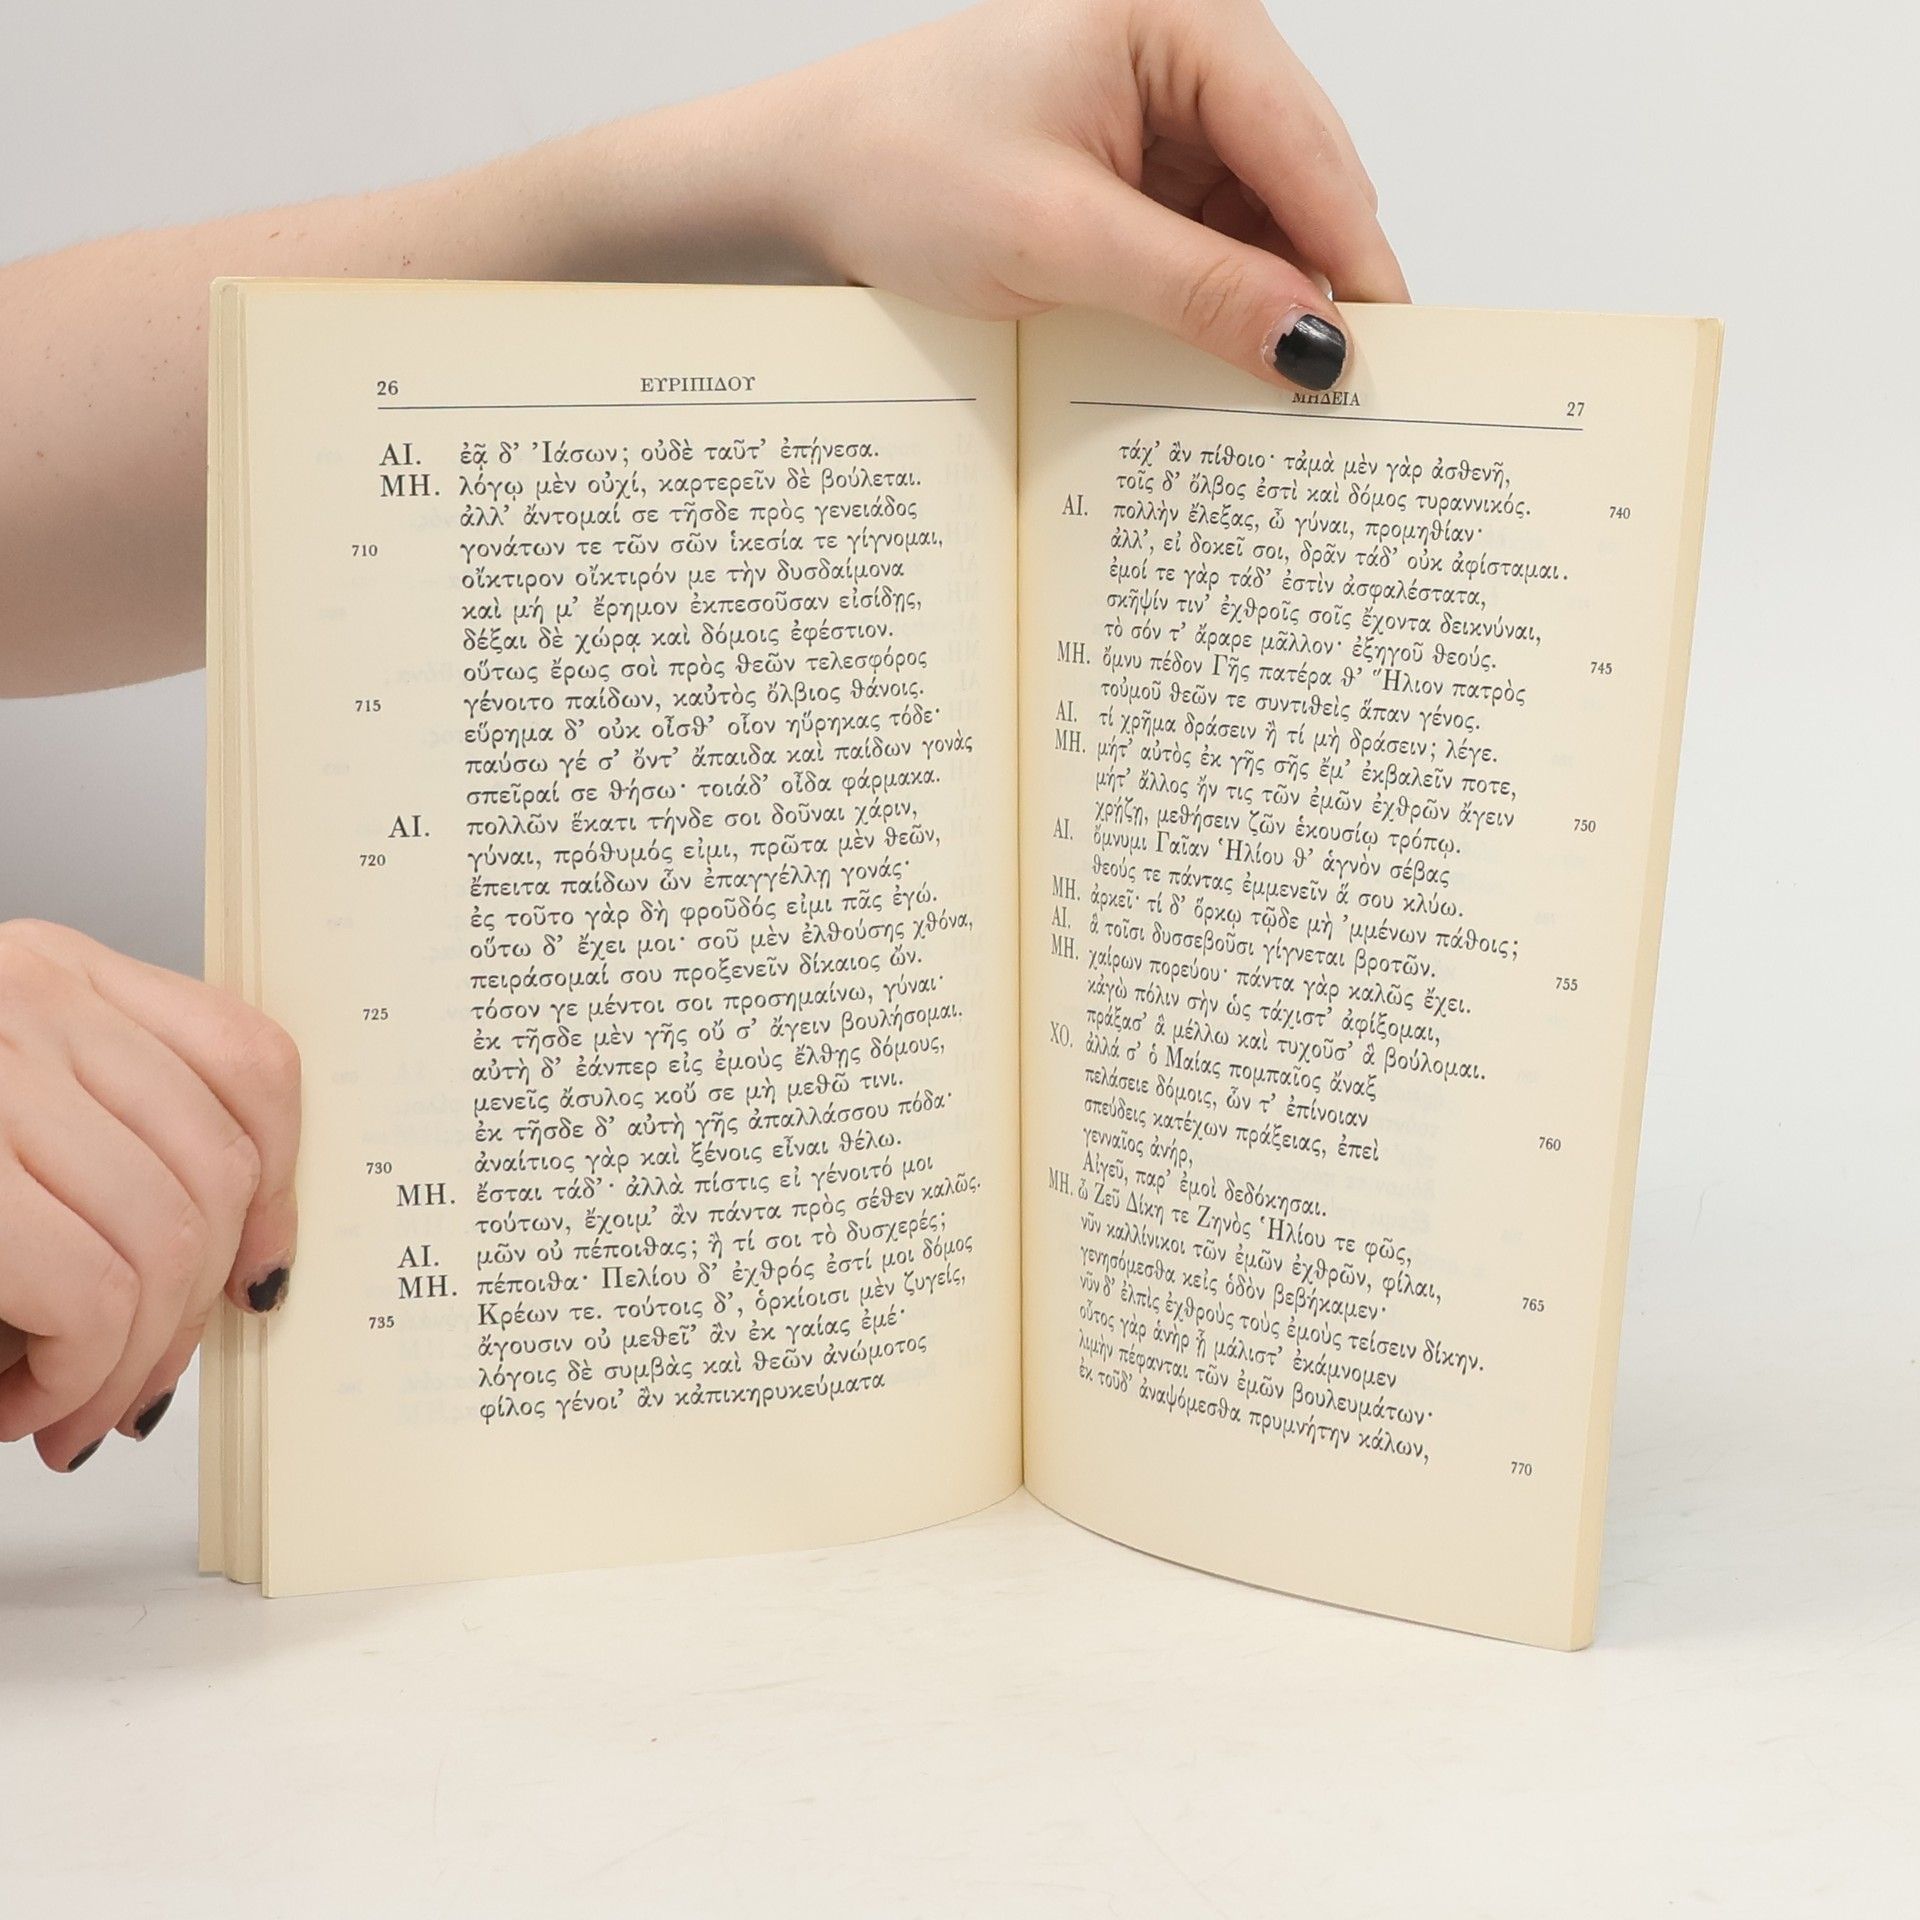 26
ΕΥΡΙΠΙΔΟΥ
ΑΙ. ἐᾷ δ’ Ἰάσων; οὐδὲ ταῦτ’ ἐπῄνεσα.
ΜΗ. λόγῳ μὲν οὐχί, καρτερεῖν δὲ βούλεται.
ἀλλ’ ἄντομαί σε τῆσδε πρὸς γενειάδος
710 γονάτων τε τῶν σῶν ἱκεσία τε γίγνομαι,
οἴκτιρον οἴκτιρόν με τὴν δυσδαίμονα
καὶ μή μ’ ἔρημον ἐκπεσοῦσαν εἰσίδῃς,
δέξαι δὲ χώρᾳ καὶ δόμοις ἐφέστιον.
οὕτως ἔρως σοὶ πρὸς θεῶν τελεσφόρος
715 γένοιτο παίδων, καὐτὸς ὄλβιος θάνοις.
εὕρημα δ’ οὐκ οἶσθ’ οἷον ηὕρηκας τόδε·
παύσω γέ σ’ ὄντ’ ἄπαιδα καὶ παίδων γονὰς
σπεῖραί σε θήσω· τοιάδ’ οἶδα φάρμακα.
ΑΙ. πολλῶν ἕκατι τήνδε σοι δοῦναι χάριν,
720 γύναι, πρόθυμός εἰμι, πρῶτα μὲν θεῶν,
ἔπειτα παίδων ὧν ἐπαγγέλλῃ γονάς·
ἐς τοῦτο γὰρ δὴ φροῦδός εἰμι πᾶς ἐγώ.
οὕτω δ’ ἔχει μοι· σοῦ μὲν ἐλθούσης χθόνα,
πειράσομαί σου προξενεῖν δίκαιος ὤν.
725 τόσον γε μέντοι σοι προσημαίνω, γύναι·
ἐκ τῆσδε μὲν γῆς οὔ σ’ ἄγειν βουλήσομαι.
αὐτὴ δ’ ἐάνπερ εἰς ἐμοὺς ἔλθῃς δόμους,
μενεῖς ἄσυλος κοὔ σε μὴ μεθῶ τινι.
ἐκ τῆσδε δ’ αὐτὴ γῆς ἀπαλλάσσου πόδα·
730 ἀναίτιος γὰρ καὶ ξένοις εἶναι θέλω.
ΜΗ. ἔσται τάδ’· ἀλλὰ πίστις εἰ γένοιτό μοι
τούτων, ἔχοιμ’ ἂν πάντα πρὸς σέθεν καλῶς.
ΑΙ. μῶν οὐ πέποιθας; ἢ τί σοι τὸ δυσχερές;
ΜΗ. πέποιθα· Πελίου δ’ ἐχθρός ἐστί μοι δόμος
735 Κρέων τε. τούτοις δ’, ὁρκίοισι μὲν ζυγείς,
ἄγουσιν οὐ μεθεῖ’ ἂν ἐκ γαίας ἐμέ·
λόγοις δὲ συμβὰς καὶ θεῶν ἀνώμοτος
φίλος γένοι’ ἂν κἀπικηρυκεύματα
ΜΗΔΕΙΑ
27
τάχ’ ἂν πίθοιο· τἀμὰ μὲν γὰρ ἀσθενῆ,
τοῖς δ’ ὄλβος ἐστὶ καὶ δόμος τυραννικός. 740
ΑΙ. πολλὴν ἔλεξας, ὦ γύναι, προμηθίαν·
ἀλλ’, εἰ δοκεῖ σοι, δρᾶν τάδ’ οὐκ ἀφίσταμαι.
ἐμοί τε γὰρ τάδ’ ἐστὶν ἀσφαλέστατα,
σκῆψίν τιν’ ἐχθροῖς σοῖς ἔχοντα δεικνύναι,
τὸ σόν τ’ ἄραρε μᾶλλον· ἐξηγοῦ θεούς. 745
ΜΗ. ὄμνυ πέδον Γῆς πατέρα θ’ Ἥλιον πατρὸς
τοὐμοῦ θεῶν τε συντιθεὶς ἅπαν γένος.
ΑΙ. τί χρῆμα δράσειν ἢ τί μὴ δράσειν; λέγε.
ΜΗ. μήτ’ αὐτὸς ἐκ γῆς σῆς ἔμ’ ἐκβαλεῖν ποτε,
μήτ’ ἄλλος ἤν τις τῶν ἐμῶν ἐχθρῶν ἄγειν 750
χρῄζῃ, μεθήσειν ζῶν ἑκουσίῳ τρόπῳ.
ΑΙ. ὄμνυμι Γαῖαν Ἡλίου θ’ ἁγνὸν σέβας
θεούς τε πάντας ἐμμενεῖν ἅ σου κλύω.
ΜΗ. ἀρκεῖ· τί δ’ ὅρκῳ τῷδε μὴ ’μμένων πάθοις;
ΑΙ. ἃ τοῖσι δυσσεβοῦσι γίγνεται βροτῶν. 755
ΜΗ. χαίρων πορεύου· πάντα γὰρ καλῶς ἔχει.
κἀγὼ πόλιν σὴν ὡς τάχιστ’ ἀφίξομαι,
πράξασ’ ἃ μέλλω καὶ τυχοῦσ’ ἃ βούλομαι.
ΧΟ. ἀλλά σ’ ὁ Μαίας πομπαῖος ἄναξ
πελάσειε δόμοις, ὧν τ’ ἐπίνοιαν 760
σπεύδεις κατέχων πράξειας, ἐπεὶ
γενναῖος ἀνήρ,
Αἰγεῦ, παρ’ ἐμοὶ δεδόκησαι.
ΜΗ. ὦ Ζεῦ Δίκη τε Ζηνὸς Ἡλίου τε φῶς,
νῦν καλλίνικοι τῶν ἐμῶν ἐχθρῶν, φίλαι, 765
γενησόμεσθα κεἰς ὁδὸν βεβήκαμεν·
νῦν δ’ ἐλπὶς ἐχθροὺς τοὺς ἐμοὺς τείσειν δίκην.
οὗτος γὰρ ἁνὴρ ᾗ μάλιστ’ ἐκάμνομεν
λιμὴν πέφανται τῶν ἐμῶν βουλευμάτων·
ἐκ τοῦδ’ ἀναψόμεσθα πρυμνήτην κάλων, 770